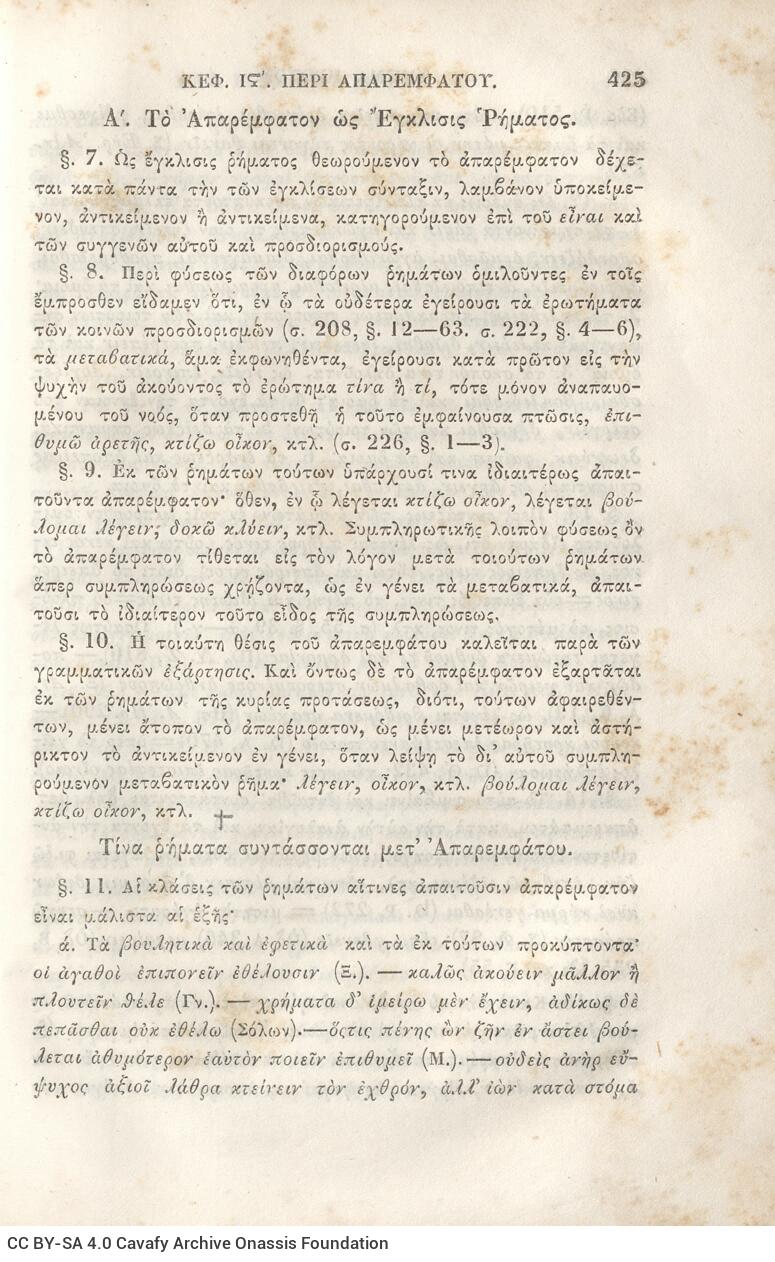 ΚΕΦ. Ιϛʹ. ΠΕΡΙ ΑΠΑΡΕΜΦΑΤΟΥ. 425
Αʹ. Τὸ Ἀπαρέμφατον ὡς Ἔγκλισις Ῥήματος.
§. 7. Ὡς ἔγκλισις ῥήματος θεωρούμενον τὸ ἀπαρέμφατον δέχε-
ται κατὰ πάντα τὴν τῶν ἐγκλίσεων σύνταξιν, λαμβάνον ὑποκείμε-
νον, ἀντικείμενον ἢ ἀντικείμενα, κατηγορούμενον ἐπὶ τοῦ εἶναι καὶ
τῶν συγγενῶν αὐτοῦ καὶ προσδιορισμούς.
§. 8. Περὶ φύσεως τῶν διαφόρων ῥημάτων ὁμιλοῦντες ἐν τοῖς
ἔμπροσθεν εἴδαμεν ὅτι, ἐν ᾧ τὰ οὐδέτερα ἐγείρουσι τὰ ἐρωτήματα
τῶν κοινῶν προσδιορισμῶν (σ. 208, §. 12—63. σ. 222, §. 4—6),
τὰ μεταβατικά, ἅμα ἐκφωνηθέντα, ἐγείρουσι κατὰ πρῶτον εἰς τὴν
ψυχὴν τοῦ ἀκούοντος τὸ ἐρώτημα τίνα ἢ τί, τότε μόνον ἀναπαυο-
μένου τοῦ νοός, ὅταν προστεθῇ ἡ τοῦτο ἐμφαίνουσα πτῶσις, ἐπι-
θυμῶ ἀρετῆς, κτίζω οἶκον, κτλ. (σ. 226, §. 1—3).
§. 9. Ἐκ τῶν ῥημάτων τούτων ὑπάρχουσί τινα ἰδιαιτέρως ἀπαι-
τοῦντα ἀπαρέμφατον· ὅθεν, ἐν ᾧ λέγεται κτίζω οἶκον, λέγεται βού-
λομαι λέγειν, δοκῶ κλύειν, κτλ. Συμπληρωτικῆς λοιπὸν φύσεως ὂν
τὸ ἀπαρέμφατον τίθεται εἰς τὸν λόγον μετὰ τοιούτων ῥημάτων
ἅπερ συμπληρώσεως χρῄζοντα, ὡς ἐν γένει τὰ μεταβατικά, ἀπαι-
τοῦσι τὸ ἰδιαίτερον τοῦτο εἶδος τῆς συμπληρώσεως.
§. 10. Ἡ τοιαύτη θέσις τοῦ ἀπαρεμφάτου καλεῖται παρὰ τῶν
γραμματικῶν ἐξάρτησις. Καὶ ὄντως δὲ τὸ ἀπαρέμφατον ἐξαρτᾶται
ἐκ τῶν ῥημάτων τῆς κυρίας προτάσεως, διότι, τούτων ἀφαιρεθέν-
των, μένει ἄτοπον τὸ ἀπαρέμφατον, ὡς μένει μετέωρον καὶ ἀστή-
ρικτον τὸ ἀντικείμενον ἐν γένει, ὅταν λείψῃ τὸ δι' αὐτοῦ συμπλη-
ρούμενον μεταβατικὸν ῥῆμα· λέγειν, οἶκον, κτλ. βούλομαι λέγειν,
κτίζω οἶκον, κτλ.
Τίνα ῥήματα συντάσσονται μετ' Ἀπαρεμφάτου.
§. 11. Αἱ κλάσεις τῶν ῥημάτων αἵτινες ἀπαιτοῦσιν ἀπαρέμφατον
εἶναι μάλιστα αἱ ἑξῆς·
ά. Τὰ βουλητικὰ καὶ ἐφετικὰ καὶ τὰ ἐκ τούτων προκύπτοντα·
οἱ ἀγαθοὶ ἐπιπονεῖν ἐθέλουσιν (Ξ.). — καλῶς ἀκούειν μᾶλλον ἢ
πλουτεῖν θέλε (Γν.). — χρήματα δ' ἱμείρω μὲν ἔχειν, ἀδίκως δὲ
πεπᾶσθαι οὐκ ἐθέλω (Σόλων).—ὅςτις πένης ὢν ζῆν ἐν ἄστει βού-
λεται ἀθυμότερον ἑαυτὸν ποιεῖν ἐπιθυμεῖ (Μ.). — οὐδεὶς ἀνὴρ εὔ-
ψυχος ἀξιοῖ λάθρα κτείνειν τὸν ἐχθρόν, ἀλλ' ἰὼν κατὰ στόμα
CC BY-SA 4.0 Cavafy Archive Onassis Foundation